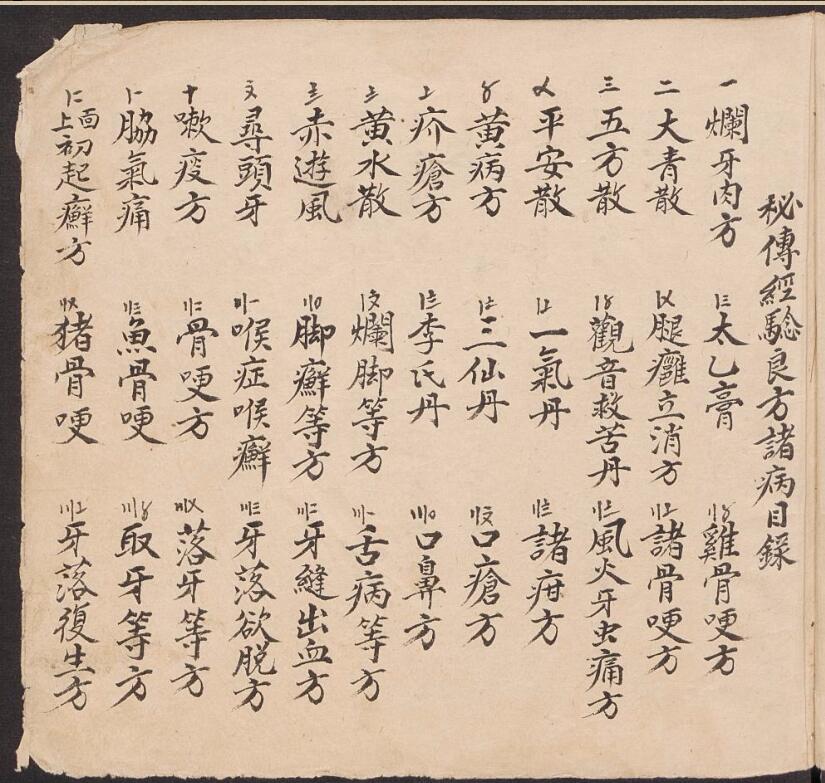 秘傳經驗良方諸病目錄
一 爛牙肉方
二 大青散
三 五方散
〤 平安散
〥 黃病方
〦 疥瘡方
〧 黃水散
〨 赤遊風
〩 尋頭牙
十 嗽疫方
〡一 脇氣痛
〡二 面上初起癬方
〡三 太乙膏
〡〤 腿癰立消方
〡〥 觀音救苦丹
〡〦 一氣丹
〡〧 三仙丹
〡〨 李氏丹
〡〩 爛脚等方
〢〇 脚癬等方
〢一 喉症喉癬
〢二 骨哽方
〢三 魚骨哽
〢〤 猪骨哽
〢〥 雞骨哽方
〢〦 諸骨哽方
〢〧 風火牙虫痛方
〢〨 諸疳方
〢〩 口瘡方
〣〇 口鼻方
〣一 舌病等方
〣二 牙縫出血方
〣三 牙落欲脫方
〣〤 落牙等方
〣〥 取牙等方
〣〦 牙落復生方